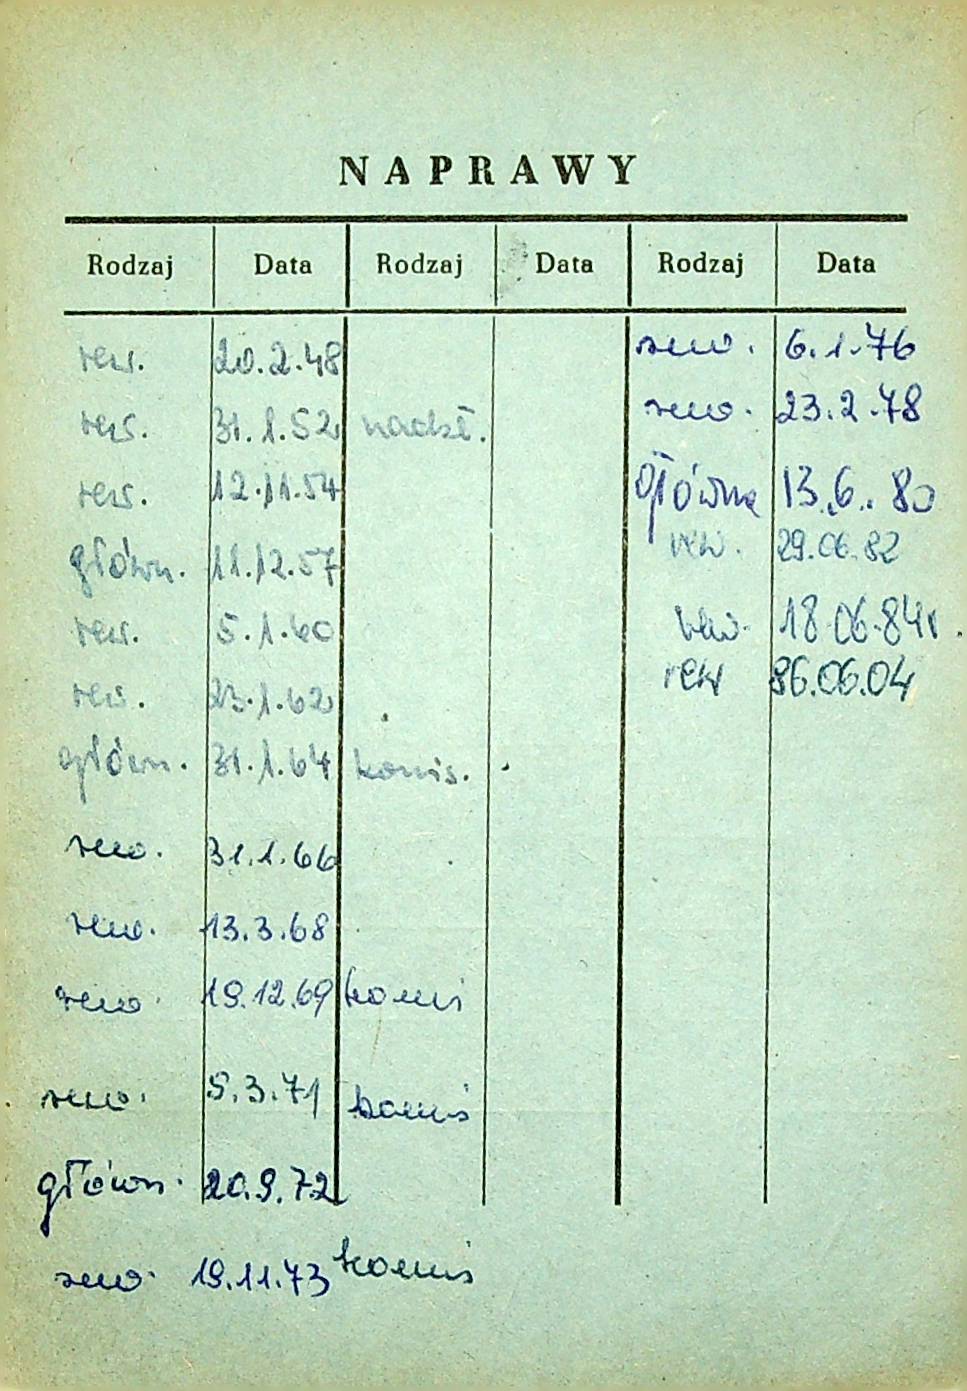 NAPRAWY
Rodzaj Data Rodzaj Data Rodzaj Data
rew. 20.2.48
rew. 31.1.52 nadzt.
rew. 12.11.54
główn. 11.12.57
rew. 5.1.60
rew. 23.1.62
główn. 31.1.64 komis.
rew. 31.1.66
rew. 13.3.68
rew. 19.12.69 komis
rew. 5.3.71 komis
główn. 20.9.72
rew. 19.11.73 komis
rew. 6.1.76
rew. 23.2.78
główna 13.6.80
rew. 29.06.82
rew. 18.06.84r.
rew 86.06.04